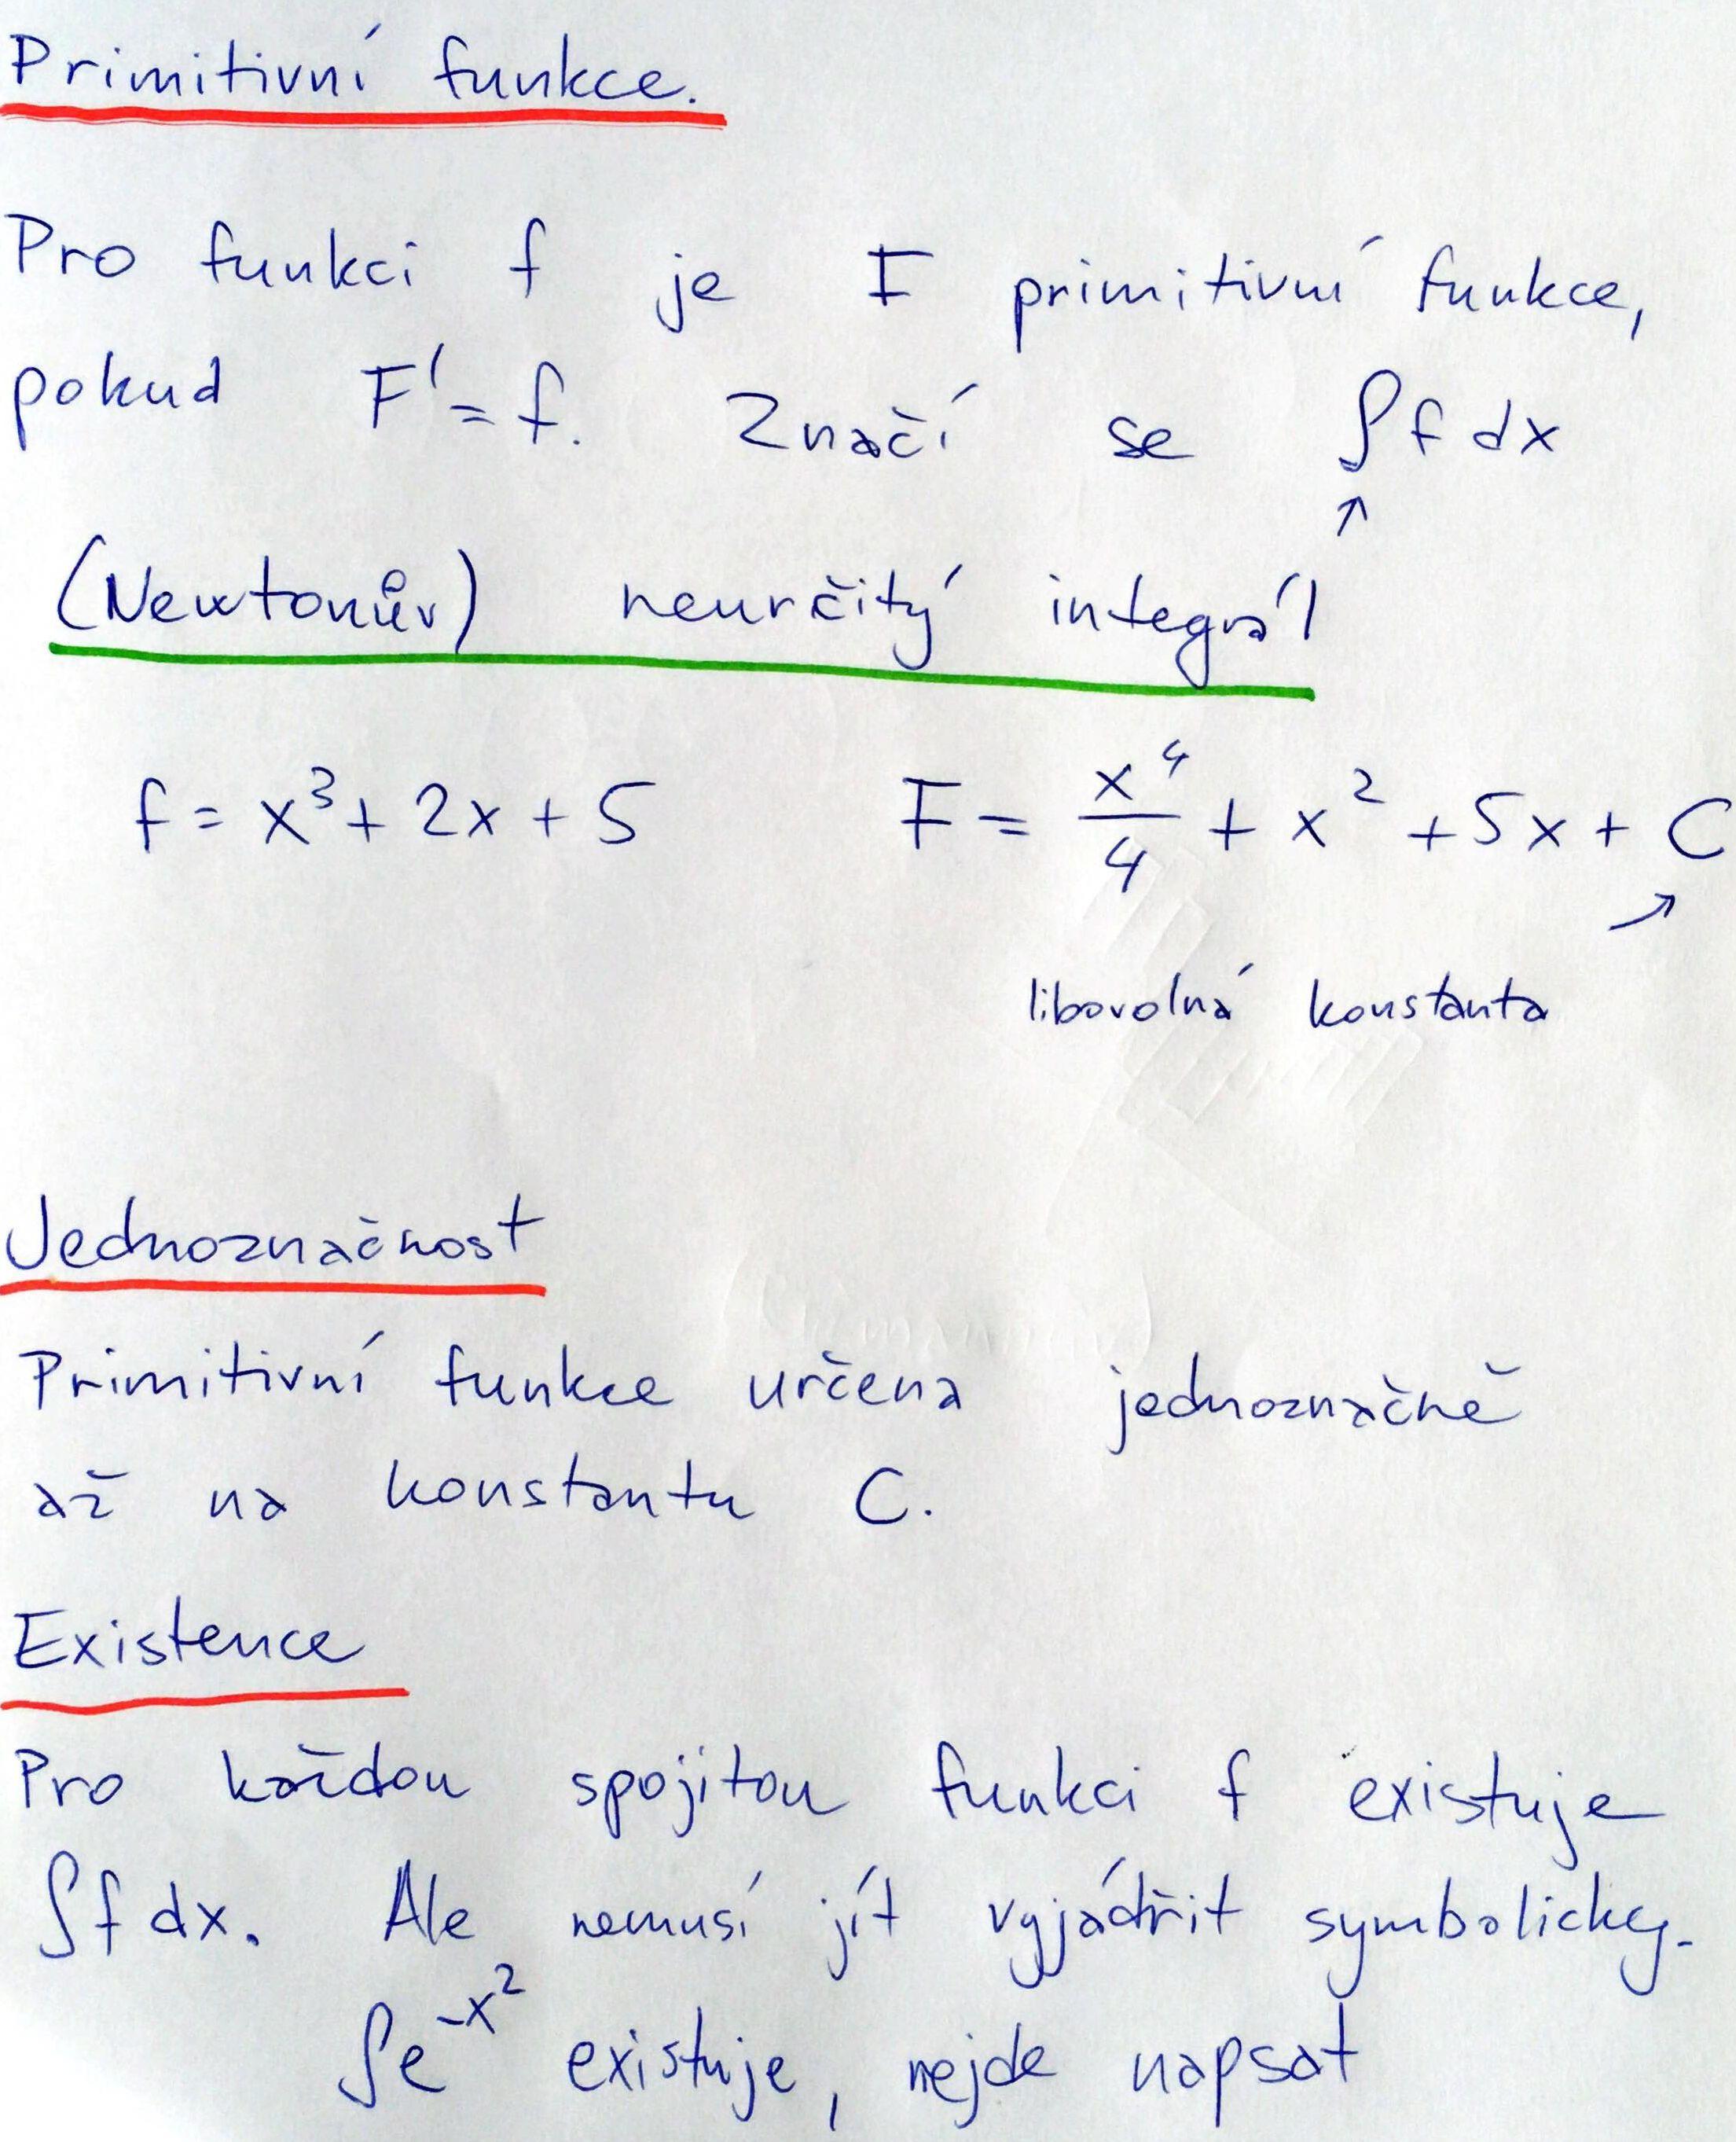 Primitivní funkce.
Pro funkci f je F primitivní funkce,
pokud F' = f. Značí se ∫f dx
↑
(Newtonův) neurčitý integrál
f = x³ + 2x + 5 F = x⁴/4 + x² + 5x + C
↗
libovolná konstanta
Jednoznačnost
Primitivní funkce určena jednoznačně
až na konstantu C.
Existence
Pro každou spojitou funkci f existuje
∫f dx. Ale nemusí jít vyjádřit symbolicky.
∫e^-x² existuje, nejde napsat